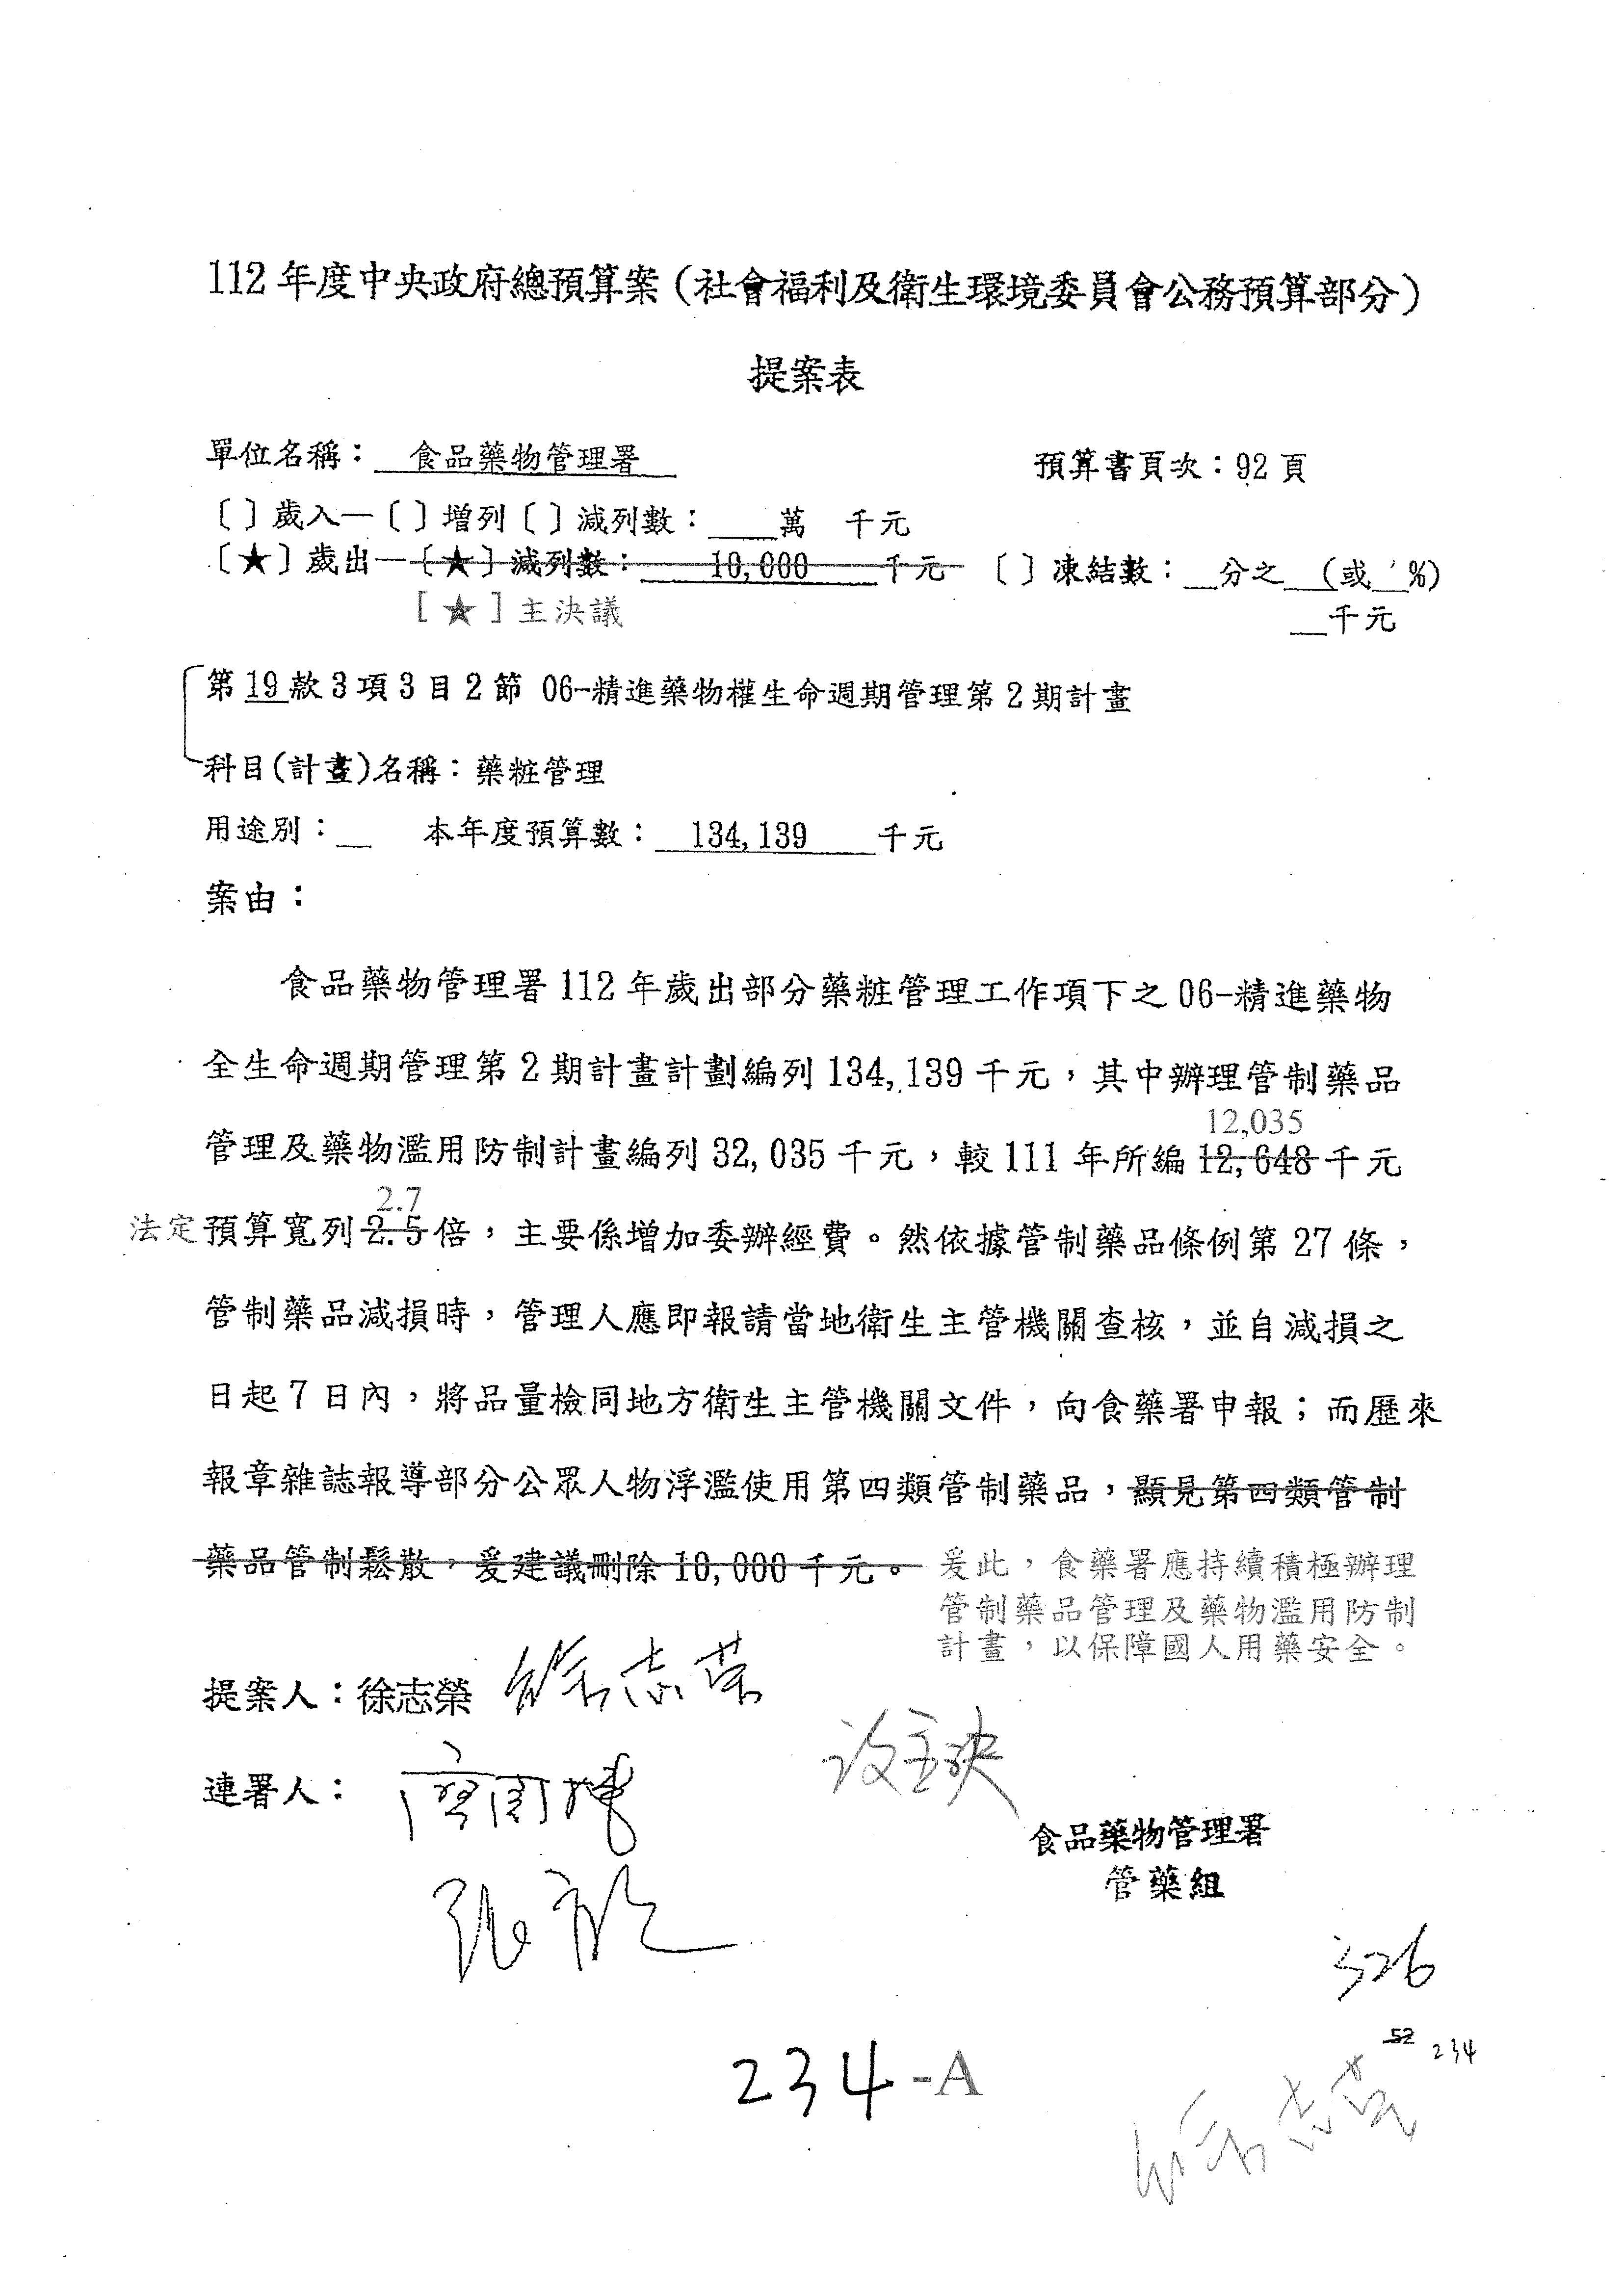 112年度中央政府總預算案(社會福利及衛生環境委員會公務預算部分)
提案表
單位名稱：食品藥物管理署 預算書頁次：92頁
〔〕歲入—〔〕增列〔〕減列數：___萬 千元
〔★〕歲出—〔★〕減列數：10,000千元 〔〕凍結數：__分之__(或__%)
[★]主決議 __千元
第19款3項3目2節 06-精進藥物權生命週期管理第2期計畫
科目(計畫)名稱：藥粧管理
用途別：__ 本年度預算數：134,139千元
案由：
食品藥物管理署112年歲出部分藥粧管理工作項下之06-精進藥物
全生命週期管理第2期計畫計劃編列134,139千元，其中辦理管制藥品
12,035
管理及藥物濫用防制計畫編列32,035千元，較111年所編12,648千元
2.7
法定預算寬列2.5倍，主要係增加委辦經費。然依據管制藥品條例第27條，
管制藥品減損時，管理人應即報請當地衛生主管機關查核，並自減損之
日起7日內，將品量檢同地方衛生主管機關文件，向食藥署申報；而歷來
報章雜誌報導部分公眾人物浮濫使用第四類管制藥品，顯見第四類管制
藥品管制鬆散，爰建議刪除10,000千元。爰此，食藥署應持續積極辦理
管制藥品管理及藥物濫用防制
計畫，以保障國人用藥安全。
提案人：徐志榮 徐志荣
改主決
連署人：
食品藥物管理署
管藥組
526
52 234
234-A
徐志荣